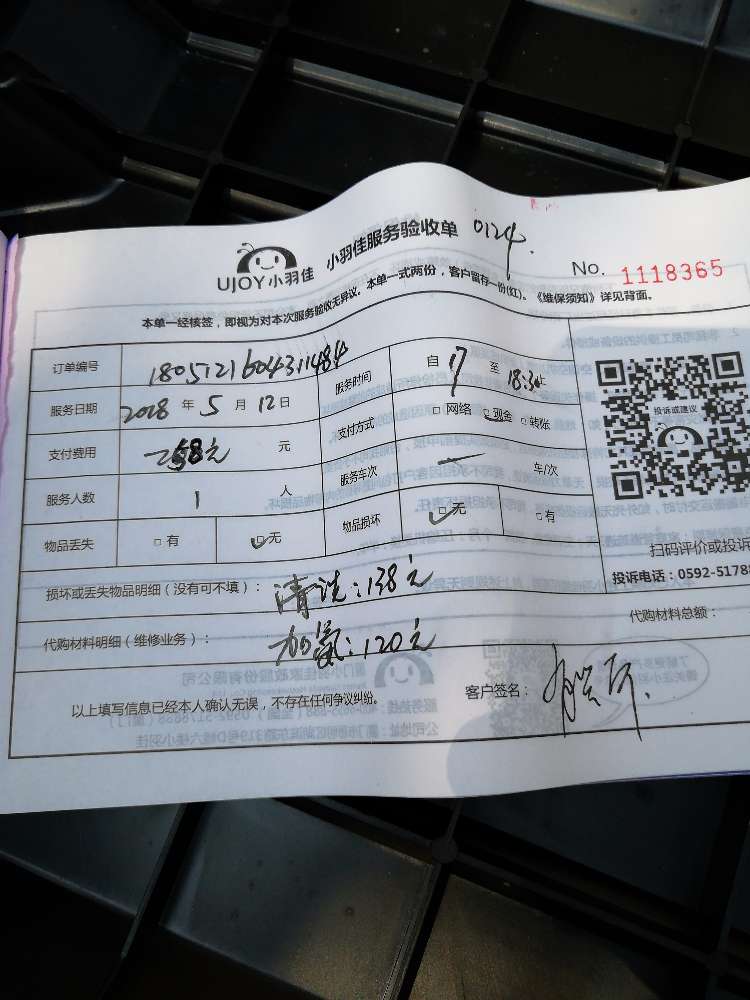 UJOY小羽佳 小羽佳服务验收单 0124.
No. 1118365
本单一经核签，即视为对本次服务验收无异议。本单一式两份，客户留存一份(红)。《维保须知》详见背面。
订单编号 1805121604311484 服务时间 自 17 至 18:30止
服务日期 2018 年 5 月 12 日 支付方式 □网络 □现金 □转账
支付费用 258元 元 服务车次 一 车/次
服务人数 1 人 物品损坏 □无 □有
物品丢失 □有 □无
投诉或建议
扫码评价或投诉
投诉电话：0592-5178
损坏或丢失物品明细（没有可不填）： 清洗：138元
代购材料总额：
代购材料明细（维修业务）： 加氨：120元
以上填写信息已经本人确认无误，不存在任何争议纠纷。 客户签名：